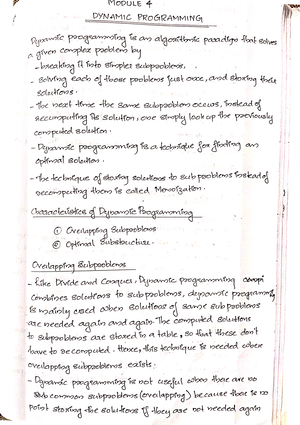 MODULE 4
DYNAMIC PROGRAMMING
Dynamic programming is an algorithmic paradigm that solves
a given complex problem by
- breaking it into simpler subproblems.
- solving each of those problems just once, and storing their
solutions.
- The next time the same subproblem occurs, instead of
recomputing its solution, one simply look up the previously
computed solution.
- Dynamic programming is a technique for finding an
optimal solution.
- The technique of storing solutions to subproblems instead of
recomputing them is called Memoization.
Characteristics of Dynamic Programming
① Overlapping Subproblems
② Optimal Substructure.
Overlapping Subproblems
- Like Divide and Conquer, Dynamic programming
combines solutions to subproblems, dynamic programming
is mainly used when solutions of same subproblems
are needed again and again. The computed solutions
to subproblems are stored in a table, so that these don't
have to recomputed. Hence, this technique is needed where
overlapping subproblems exists.
- Dynamic programming is not useful when there are no
common subproblems (overlapping) because there is no
point storing the solutions if they are not needed again